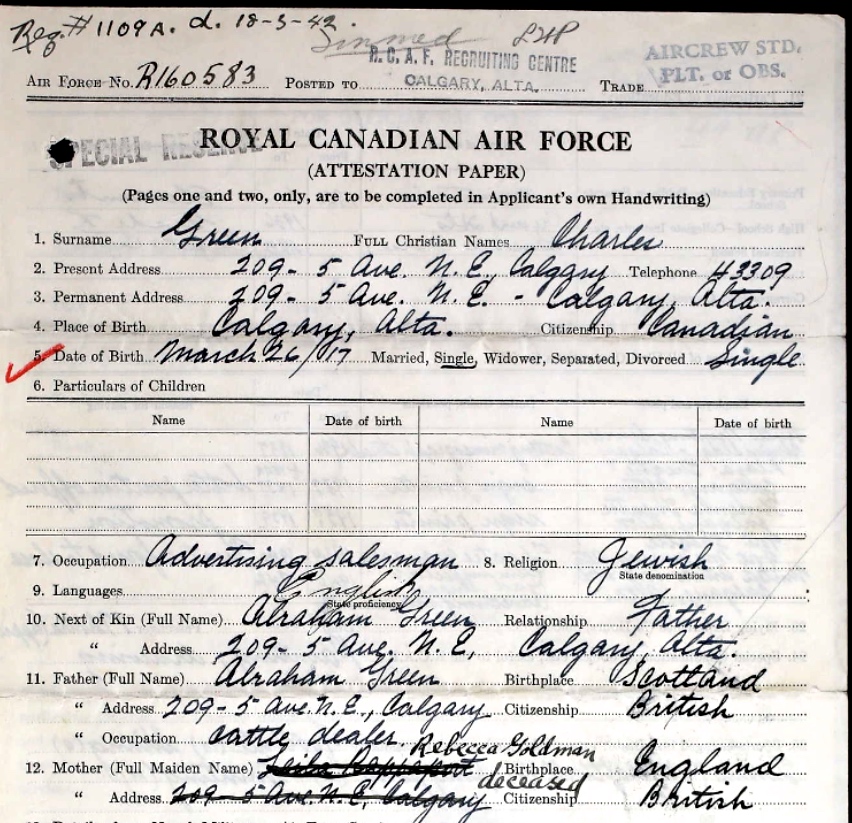 Reg. # 1109A. d. 18-3-42
R.C.A.F. RECRUITING CENTRE
CALGARY, ALTA.
AIRCREW STD.
PLT. or OBS.
AIR FORCE NO. R160583 POSTED TO TRADE
SPECIAL RESERVE
ROYAL CANADIAN AIR FORCE
(ATTESTATION PAPER)
(Pages one and two, only, are to be completed in Applicant's own Handwriting)
1. Surname Green FULL Christian Names Charles
2. Present Address 209- 5 Ave. N.E., Calgary Telephone 43309
3. Permanent Address 209- 5 Ave. N.E. - Calgary, Alta.
4. Place of Birth Calgary, Alta. Citizenship Canadian
5. Date of Birth March 26/17 Married, Single, Widower, Separated, Divorced Single
6. Particulars of Children
Name Date of birth Name Date of birth
7. Occupation Advertising salesman 8. Religion Jewish
State denomination
9. Languages English
State proficiency
10. Next of Kin (Full Name) Abraham Green Relationship Father
" Address 209- 5 Ave. N.E, Calgary, Alta.
11. Father (Full Name) Abraham Green Birthplace Scotland
" Address 209- 5 Ave. N.E., Calgary Citizenship British
" Occupation cattle dealer.
Rebecca Goldman
12. Mother (Full Maiden Name) Leila Rappaport Birthplace England
deceased
" Address 209- 5 Ave. N.E, Calgary Citizenship British